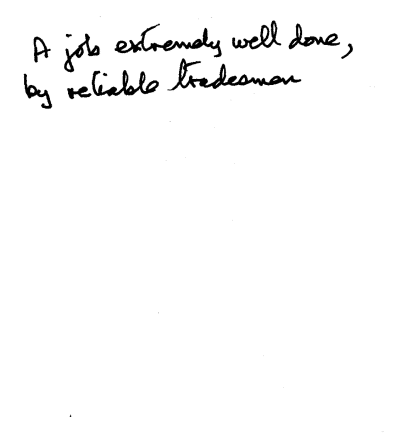 A job extremely well done,
by reliable tradesman